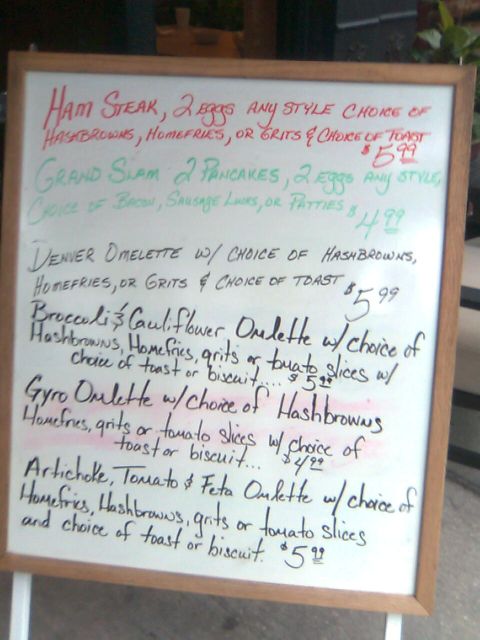 HAM STEAK, 2 EGGS ANY STYLE CHOICE OF
HASHBROWNS, HOMEFRIES, OR GRITS & CHOICE OF TOAST
$5.99
GRAND SLAM 2 PANCAKES, 2 EGGS ANY STYLE,
CHOICE OF BACON, SAUSAGE LINKS, OR PATTIES $4.99
DENVER OMELETTE W/ CHOICE OF HASHBROWNS,
HOMEFRIES, OR GRITS & CHOICE OF TOAST $5.99
Broccoli & Cauliflower Omlette w/ choice of
Hashbrowns, Homefries, grits or tomato slices w/
choice of toast or biscuit.... $5.99
Gyro Omlette w/ choice of Hashbrowns
Homefries, grits or tomato slices w/ choice of
toast or biscuit... $4.99
Artichoke, Tomato & Feta Omlette w/ choice of
Homefries, Hashbrowns, grits or tomato slices
and choice of toast or biscuit. $5.99